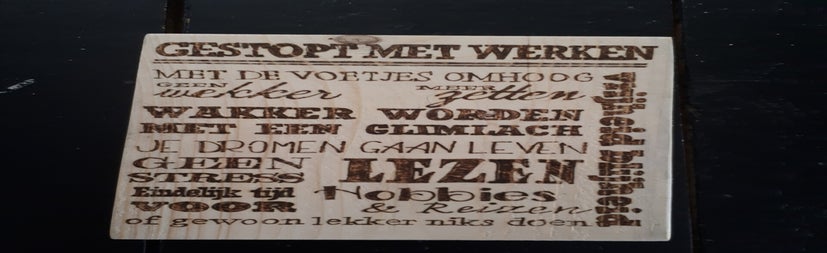 GESTOPT MET WERKEN
MET DE VOETJES OMHOOG
GEEN wekker MEER zetten
WAKKER WORDEN
MET EEN GLIMLACH
JE DROMEN GAAN LEVEN
GEEN STRESS
LEZEN
Eindelijk tijd VOOR
Hobbies & Reizen
of gewoon lekker niks doen